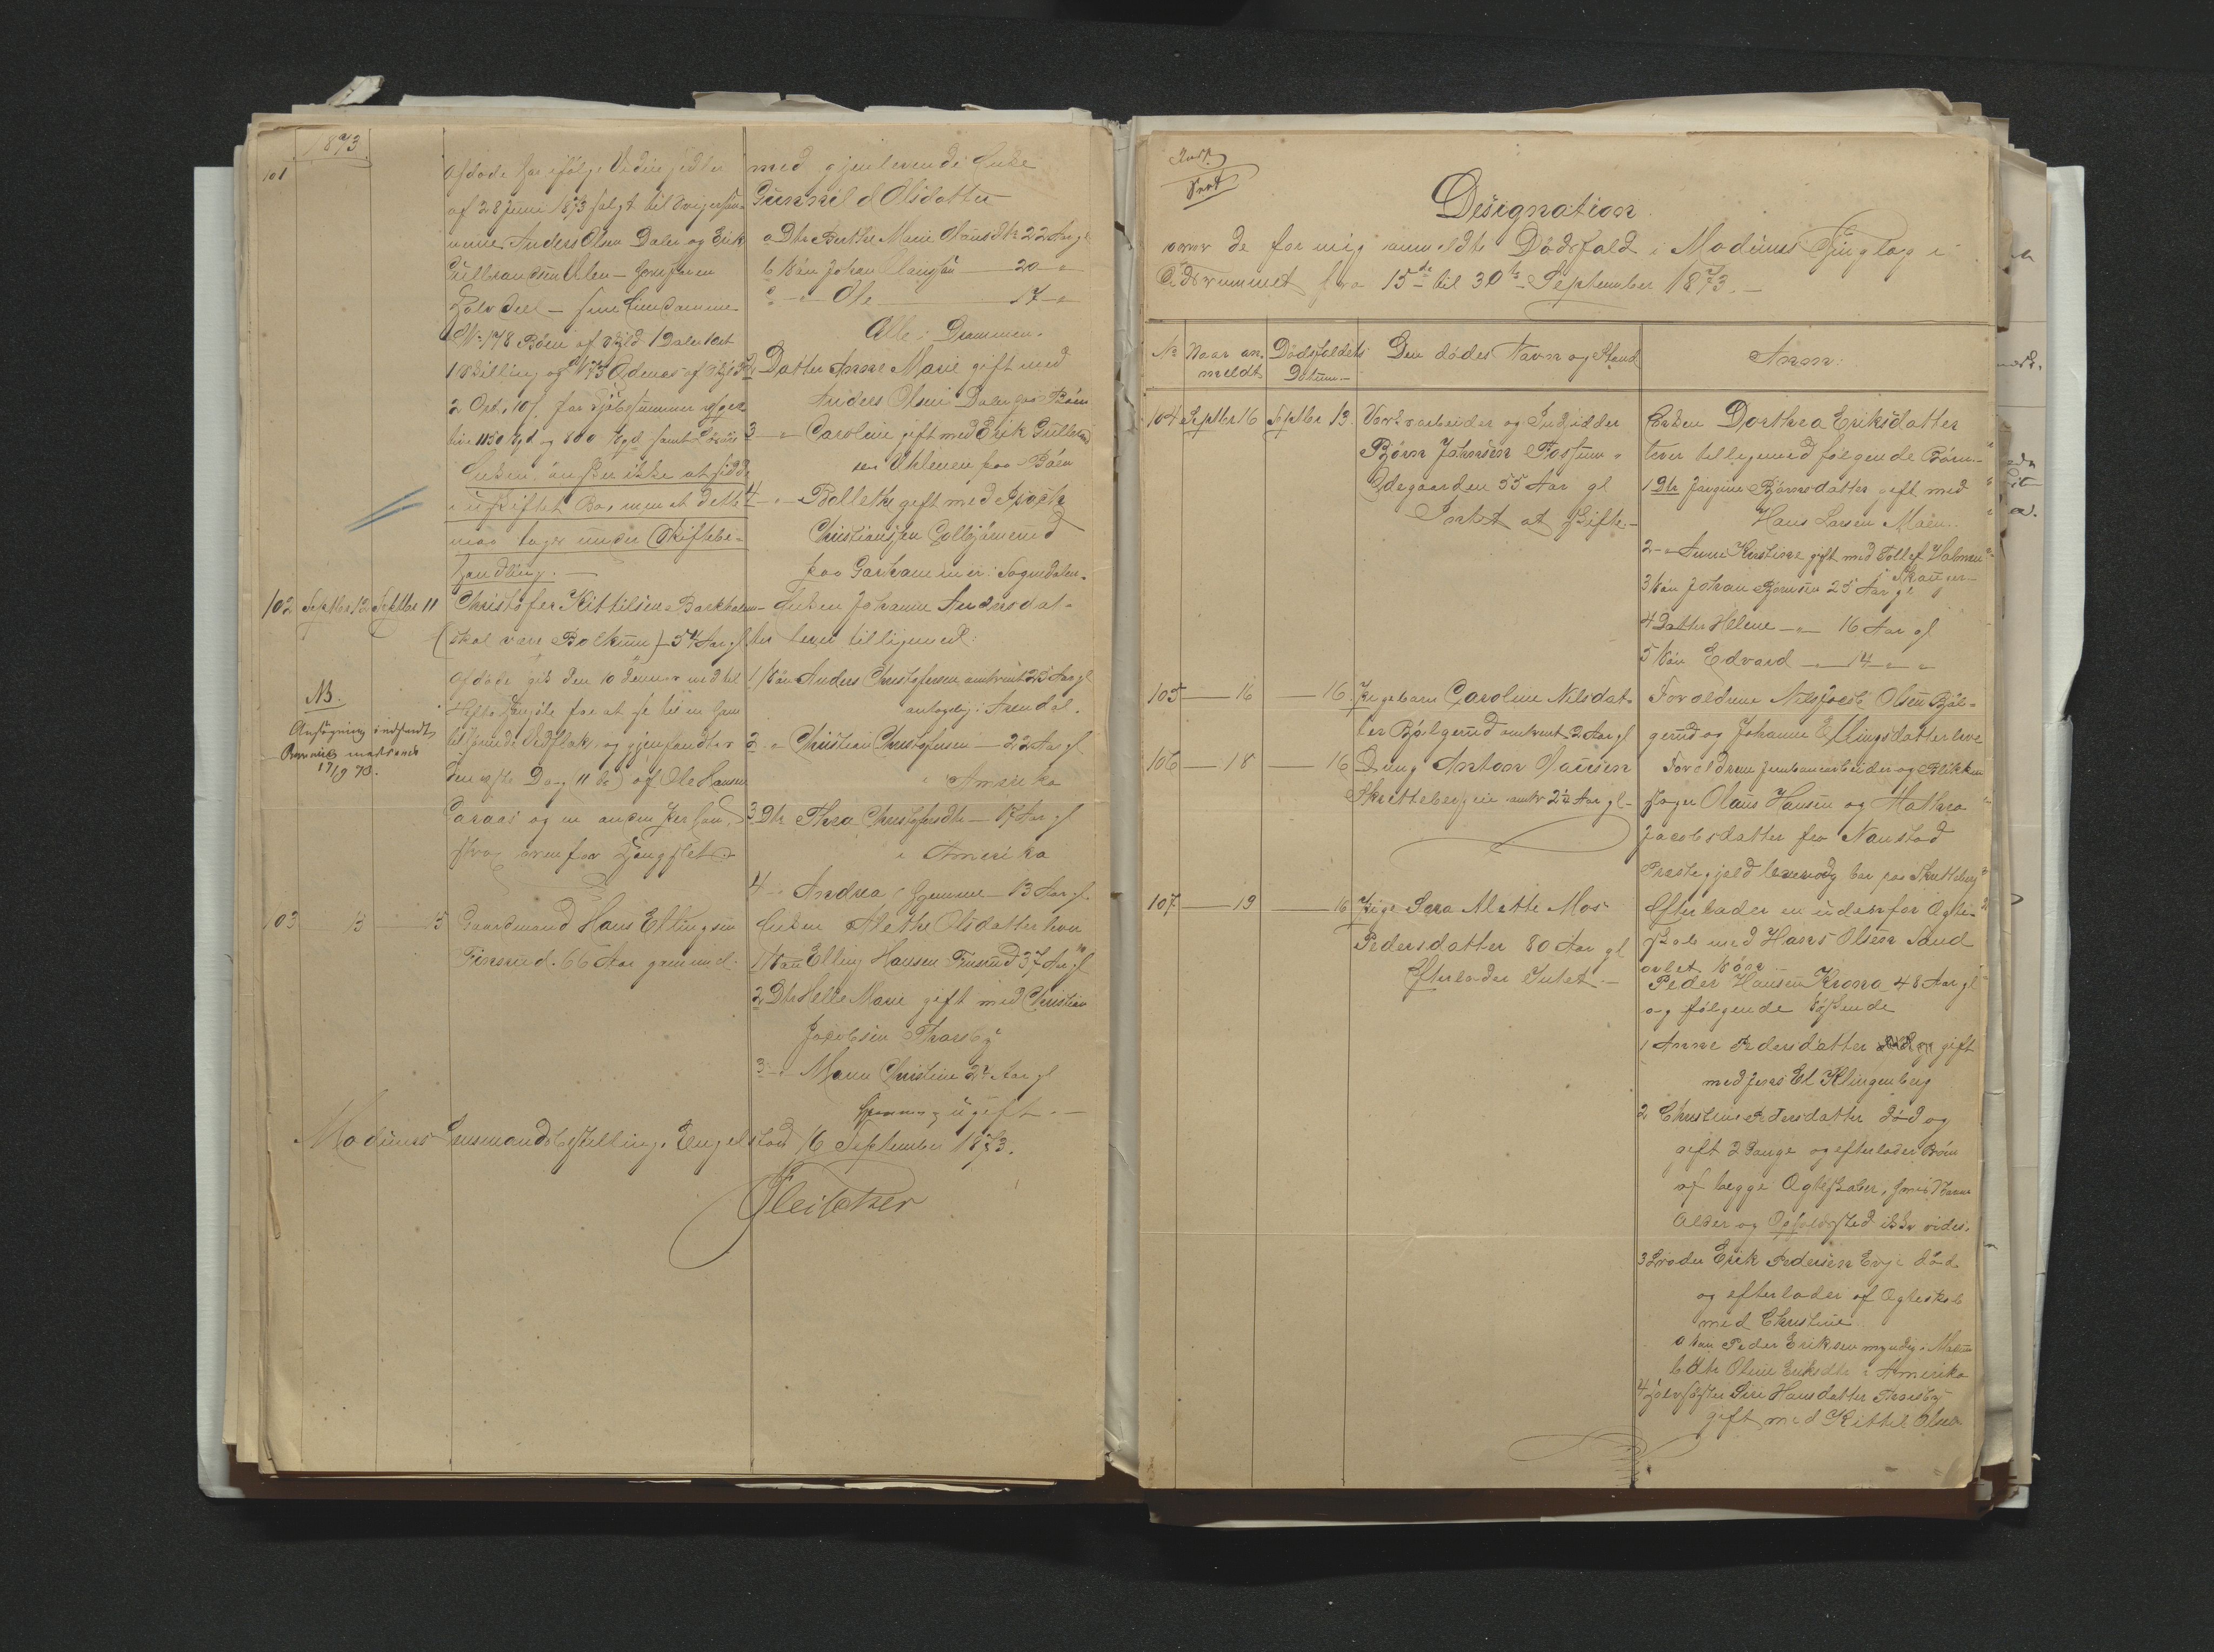 1873
101
Afdøde har ifølge
af 28 Juni 1873 solgt til Svigersøn-
nerne Anders Olsen Dalen og Erik
Gulbrandsen
Halvdeel – sine Eiendomme
No 178 Bøen af Skyld 1 Daler 1 Ort
1 Skilling og 173 Ødenæs af Skyld
2 Ort 10 s. for Kjøbesummer
1150 Spd og 800 Spd samt
Enken ønsker ikke at sidde
i uskiftet Bo, men at dette
maa tages under Skiftebe-
handling.
med gjenlevende Enke
Gunhild Olsdatter
a Dtr Berthe Marie Olausdtr 22 Aar gl
b Søn Johan Olaussøn — 20 — "
c — " Ole — 17 — "
Alle i Drammen.
2 Datter Anne Marie gift med
Anders Olsen Dalen paa Bøen
3 — " Caroline gift med Erik Gulbrand
sen paa Bøen
4 — " Bollette gift med
Christiansen
paa Garhammer i Sognedalen.
102 Septbr 12 Septbr 11 Christofer Kittilsen
(skal være Bolkum) 54 Aar gl
Afdøde gik den 10 dennes ned til
for at se til en ham
tilhørende og gjenfandtes
den næste Dag (11 te) af Ole Hansen
og en anden Person,
strax ovenfor
NB.
Ansøgning indsendt
17/9 73.
Enken Johanne Andersdat-
ter lever tilligemed:
1 Søn Anders Christofersen omtrent 25 Aar gl
antagelig i Arendal.
2 — " Christian Christofersen — 22 Aar gl
i Amerika
3 Dtr Thea Christofersdtr — 17 Aar gl
i Amerika
4 — " Andrea, hjemme — 13 Aar gl.
103 — 13 — 13 Gaardmand Hans Ellingsen
Finsrud. 66 Aar gammel.
Enken Alethe Olsdatter har
1 Søn Elling Hansen Finsrud 37 Aar gl
2 Dtr Helle Marie gift med Christian
Jacobsen Thorsby
3 — " Maren Christine 27 Aar gl
hjemme og ugift. —
Modums Lensmandsbestilling, Engelstad 16 September 1873.
Designation
over de for mig anmeldte Dødsfald i Modums Thinglag i
Tidsrummet fra 15de til 30te September 1873. —
No Naar an- meldt Dødsfaldets Datum — Den dødes Navn og Stand Anm:
104 Septbr 16 Septbr 13. Verksarbeider og Indsidder
Bjørn Johnsen Fossum
Ødegaarden 55 Aar gl
Intet at skifte. —
Enken Dorthea Eriksdatter
lever tilligemed følgende Børn —
1 Dtr Jørgine Bjørnsdatter gift med
Hans Larsen Moen.
2 — " Anne Kirstine gift med Tollef
i Skouger —
3 Søn Johan Bjørnsen 25 Aar gl
4 Datter Helene — " — 16 Aar gl
5 Søn Edvard — " — 14 — " — "
105 — 16 — 16. Pigebarn Caroline Nilsdat-
ter Bjølgerud omtrent 2 Aar gl
Forældrene Olsen Bjøl-
gerud og Johanne Ellingsdatter leve
106 — 18 — 16 Dreng Anton Olausen
Skretteberg eie omtr 2½ Aar gl —
Forældrene Jernbanearbeider og Blikken-
slager Olaus Hansen og Mathea
Jacobsdatter fra Nanstad
Præstegjeld leve og bor paa Skretteberg
107 — 19 — 16 Pige Sera Alette Mos-
Pedersdatter 80 Aar gl
Efterlader Intet. —
Efterlader en udenfor Ægte-
skab med Hans Olsen Sand
avlet Søn:
Peder Hansen Krona 48 Aar gl
og følgende Søskende
1 Anne Pedersdatter gift
med Jens El Klingenberg
2 Christine Pedersdatter død og
gift 2 Gange og efterlader Børn
af begge Ægteskaber, hvis Navne
Alder og Opholdssted ikke vides.
3 Broder Erik Pedersen Evje død
og efterlader af Ægteskab
med Christine
a Søn Peder Eriksen myndig, Modum
b Dtr Oline Eriksdtr i Amerika
4 Halvsøster Siri Hansdatter Thorsby
gift med Kittel Olsen